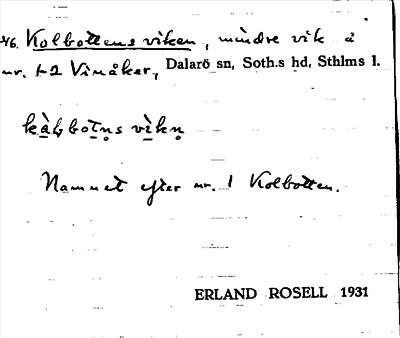 46. Kolbottensviken, mindre vik å
nr. 1-2 Vinåker, Dalarö sn, Soth.s hd, Sthlms l.
Namnet efter nr. 1 Kolbotten.
ERLAND ROSELL 1931